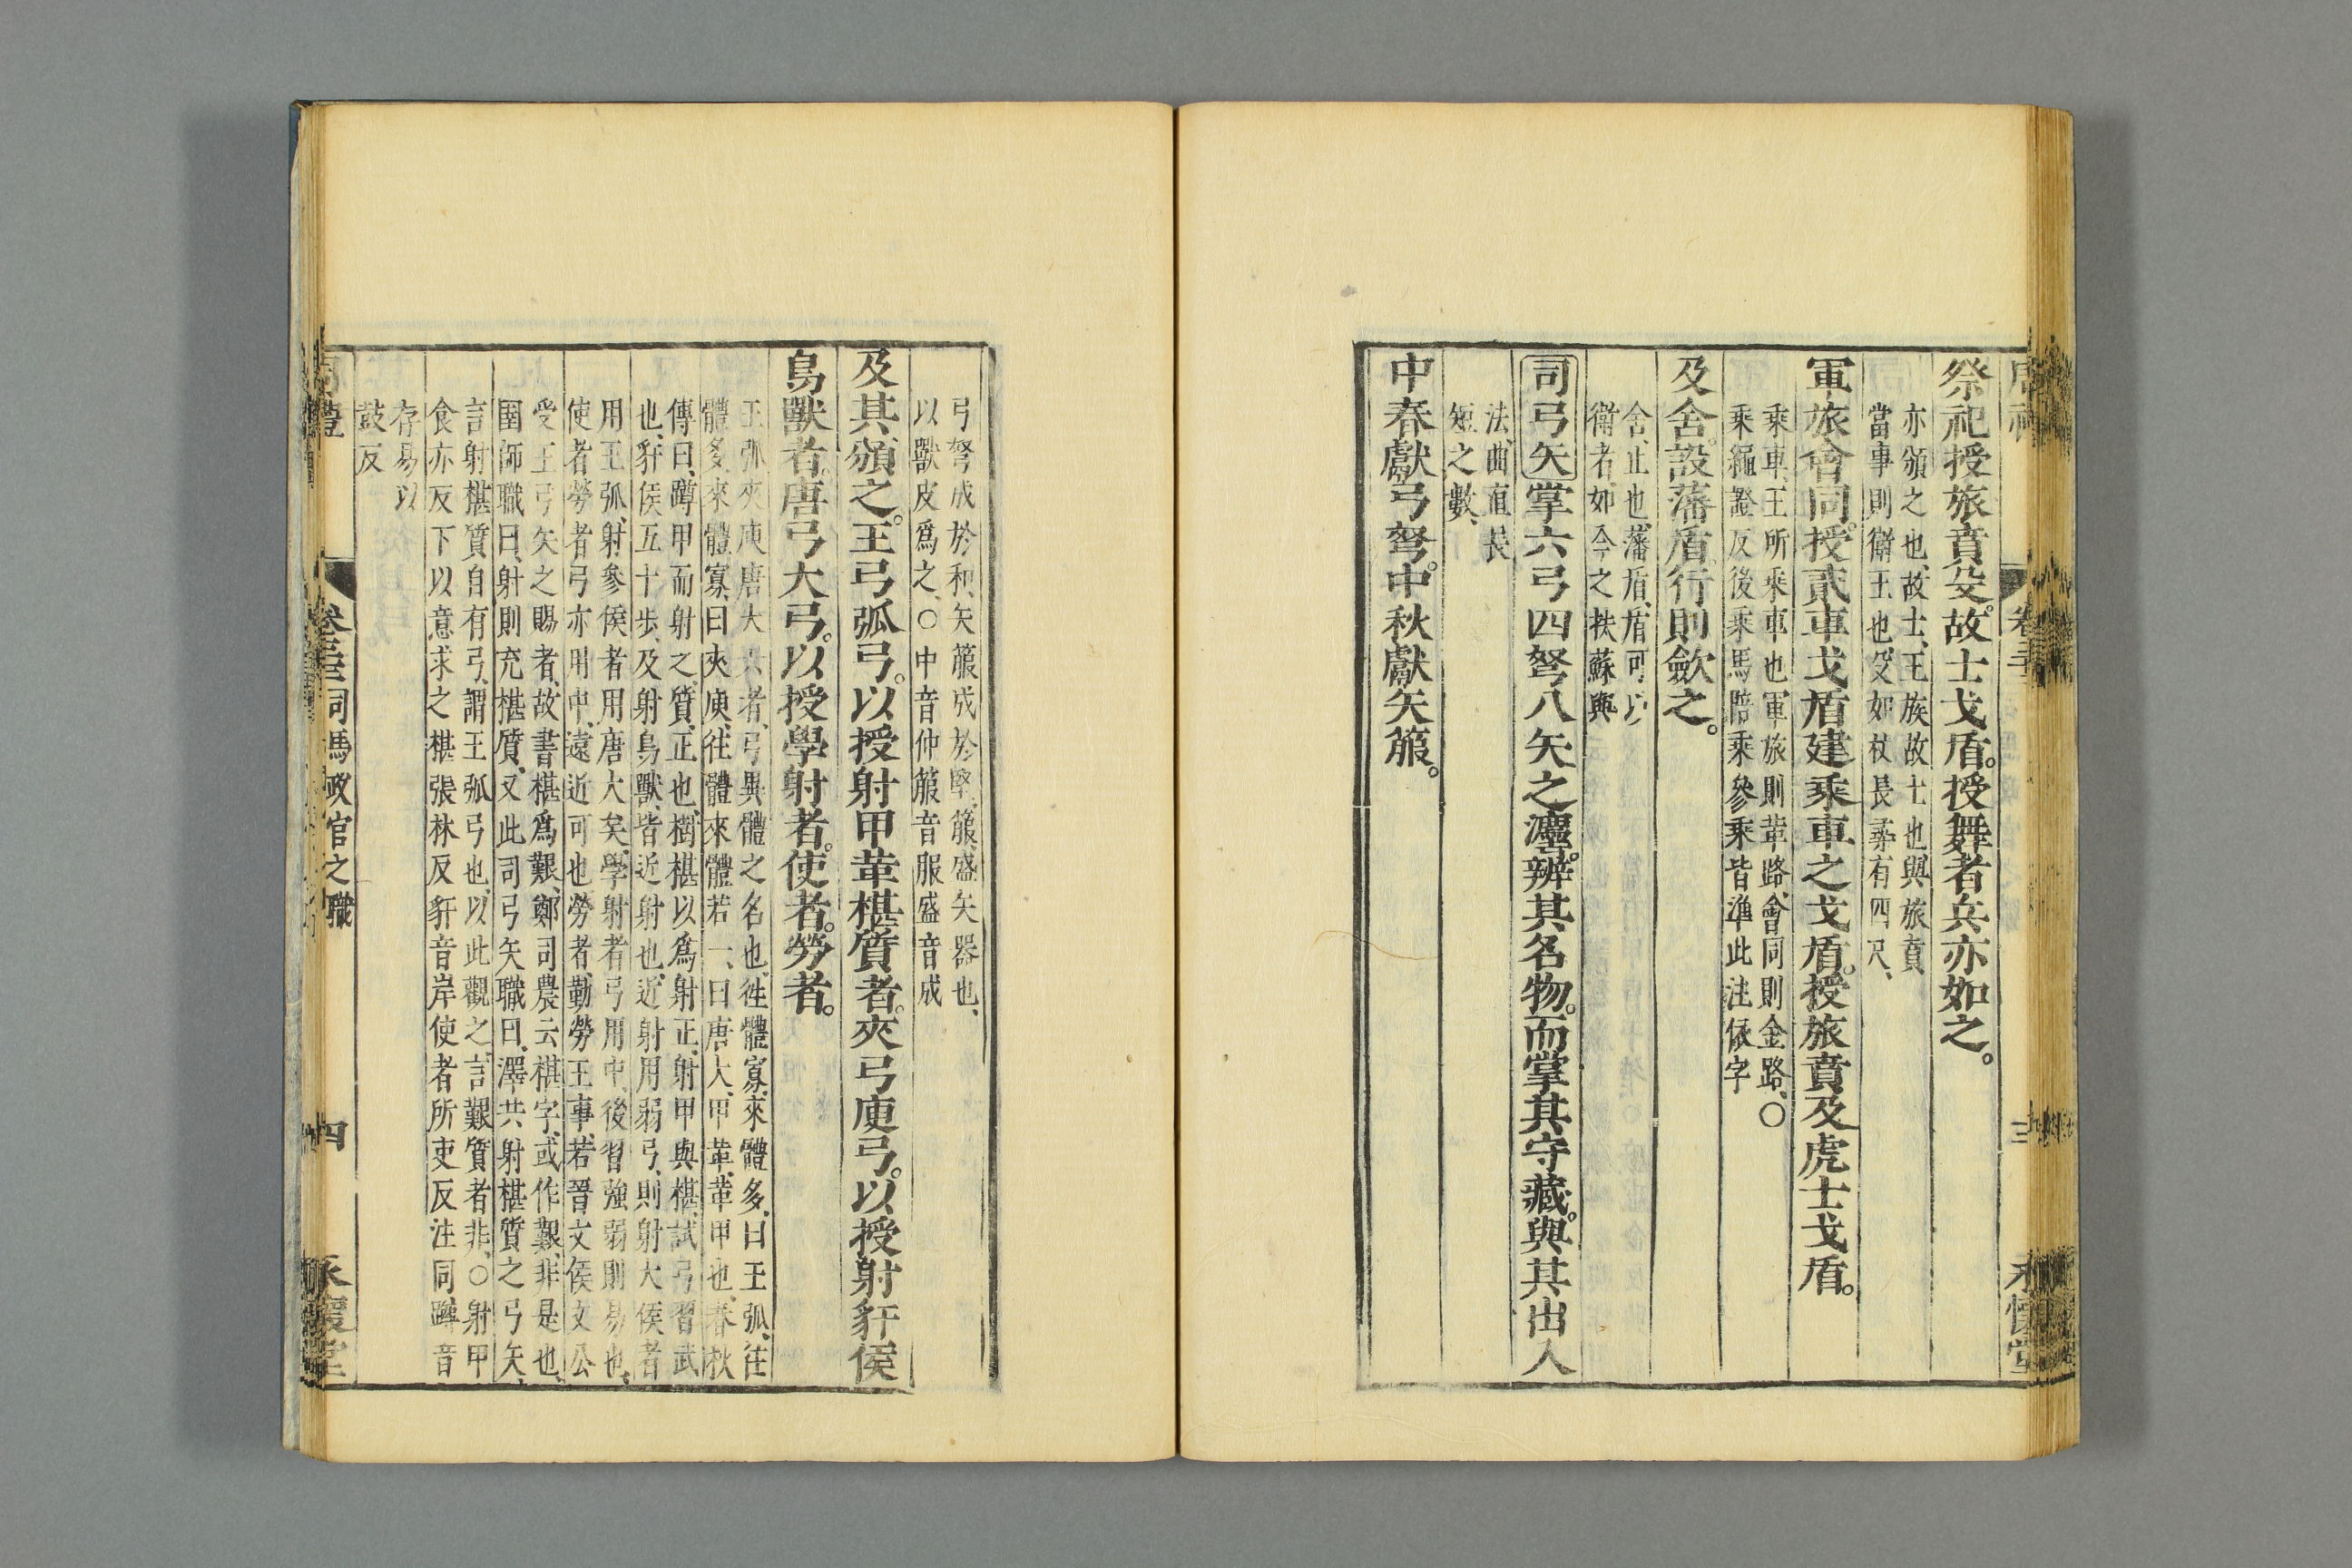 祭祀授旅賁殳。故士戈盾。授舞者兵亦如之。
亦頒之也、故士、王族故士也、與旅賁
當事則衛王也、殳如杖長尋有四尺、
軍旅會同。授貳車戈盾建乘車之戈盾。授旅賁及虎士戈盾。
乘車、王所乘車也軍旅則革路、會同則金路、〇
乘繩證反後乘馬陪乘參乘皆準此注依字
及舍。設藩盾。行則斂之。
舍、止也、藩盾、盾可以
衛者、如今之扶蘇與
司弓矢掌六弓四弩八矢之灋。辨其名物。而掌其守藏。與其出入
法、曲直長
短之數、
中春獻弓弩。中秋獻矢箙。
弓弩成於和、矢箙成於堅、箙、盛矢器也、
以獸皮爲之、〇中音仲箙音服盛音成
及其頒之。王弓弧弓。以授射甲革椹質者。夾弓庾弓。以授射豻侯
鳥獸者。唐弓大弓。以授學射者。使者。勞者。
王弧夾庾唐大六者、弓異體之名也、往體寡、來體多、曰王弧、往
體多、來體寡、曰夾庾、往體來體若一、曰唐大、甲革、革甲也、春秋
傳曰、蹲甲而射之、質、正也、樹椹以爲射正、射甲與椹、試弓習武
也、豻侯五十步、及射鳥獸、皆近射也、近射用弱弓、則射大侯者
用王弧、射參侯者用唐大矣、學射者弓用中、後習強弱則易也、
使者勞者弓亦用中、遠近可也、勞者、勤勞王事、若晉文侯文公
受王弓矢之賜者、故書椹爲艱、鄭司農云椹字、或作艱、非是也、
圉師職曰、射則充椹質、又此司弓矢職曰、澤共射椹質之弓矢、
言射椹質自有弓、謂王弧弓也、以此觀之、言艱質者非、〇射甲
食亦反下以意求之椹張林反豻音岸使者所吏反注同蹲音
存易以
鼓反
卷三十二 司馬政官之職
四
永懷堂